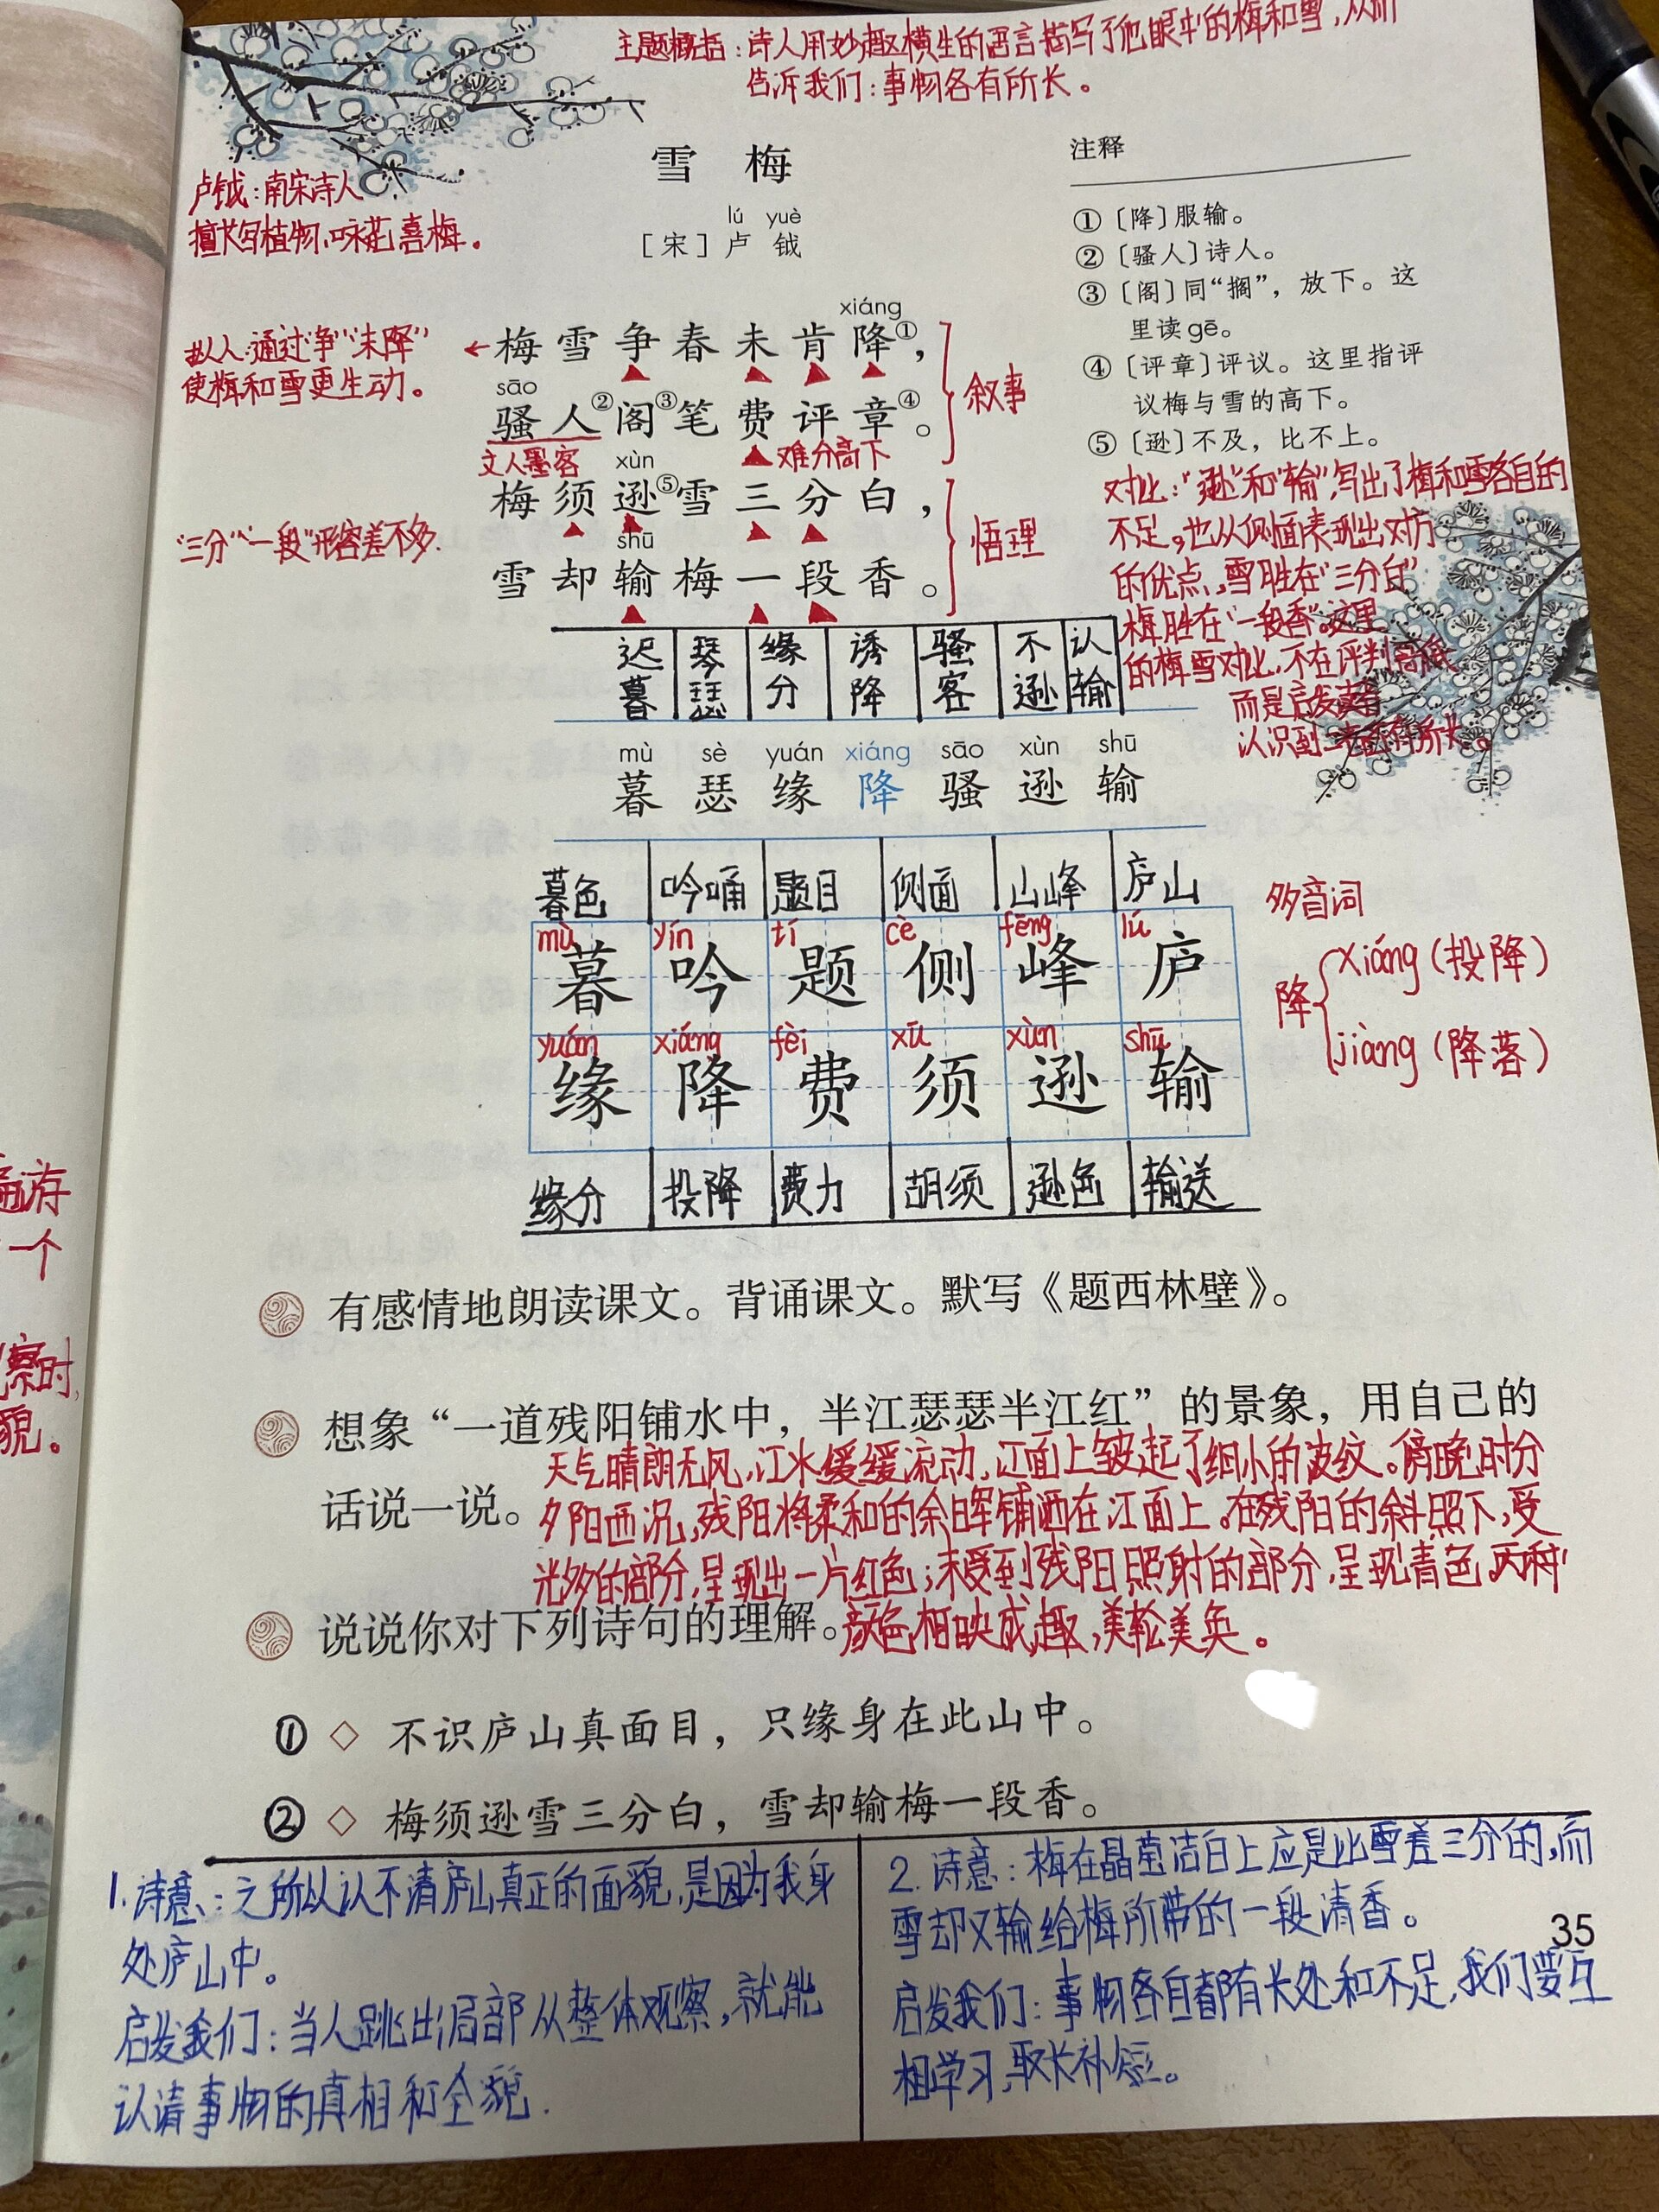 主题概括：诗人用妙趣横生的语言描写了他眼中的梅和雪，从而
告诉我们：事物各有所长。
雪 梅
lú yuè
［宋］卢 钺
卢钺：南宋诗人
擅长写植物、咏花喜梅。
注释
①〔降〕服输。
②〔骚人〕诗人。
③〔阁〕同“搁”，放下。这
里读gē。
④〔评章〕评议。这里指评
议梅与雪的高下。
⑤〔逊〕不及，比不上。
xiáng
梅雪争春未肯降①，
拟人：通过“争”“未降”
使梅和雪更生动。
sāo
骚人②阁③笔费评章④。
叙事
文人墨客
难分高下
xùn
梅须逊⑤雪三分白，
“三分”“一段”形容差不多.
shū
雪却输梅一段香。
悟理
对比：“逊”和“输”，写出了梅和雪各自的
不足，也从侧面表现出对方
的优点，雪胜在“三分白”
梅胜在“一段香”。这里
的梅雪对比，不在评判高低
而是启发读者
认识到二者各有所长。
迟暮 琴瑟 缘分 诱降 骚客 不逊 认输
mù sè yuán xiáng sāo xùn shū
暮 瑟 缘 降 骚 逊 输
暮色 吟诵 题目 侧面 山峰 庐山
mù yín tí cè fēng lú
暮 吟 题 侧 峰 庐
yuán xiáng fèi xū xùn shū
缘 降 费 须 逊 输
缘分 投降 费力 胡须 逊色 输送
多音词
降
xiáng（投降）
jiàng（降落）
遍游
一个
察时,
貌。
有感情地朗读课文。背诵课文。默写《题西林壁》。
想象“一道残阳铺水中，半江瑟瑟半江红”的景象，用自己的
话说一说。
天气晴朗无风，江水缓缓流动，江面上皱起了细小的波纹。傍晚时分
夕阳西沉，残阳将柔和的余晖铺洒在江面上。在残阳的斜照下，受
光多的部分，呈现出一片红色；未受到残阳照射的部分，呈现青色，两种
颜色相映成趣，美轮美奂。
说说你对下列诗句的理解。
① ◇ 不识庐山真面目，只缘身在此山中。
② ◇ 梅须逊雪三分白，雪却输梅一段香。
1. 诗意：之所以认不清庐山真正的面貌，是因为我身
处庐山中。
启发我们：当人跳出局部从整体观察，就能
认清事物的真相和全貌.
2. 诗意：梅在晶莹洁白上应是比雪差三分的，而
雪却又输给梅所带的一段清香。
启发我们：事物各自都有长处和不足，我们要互
相学习，取长补短。
35